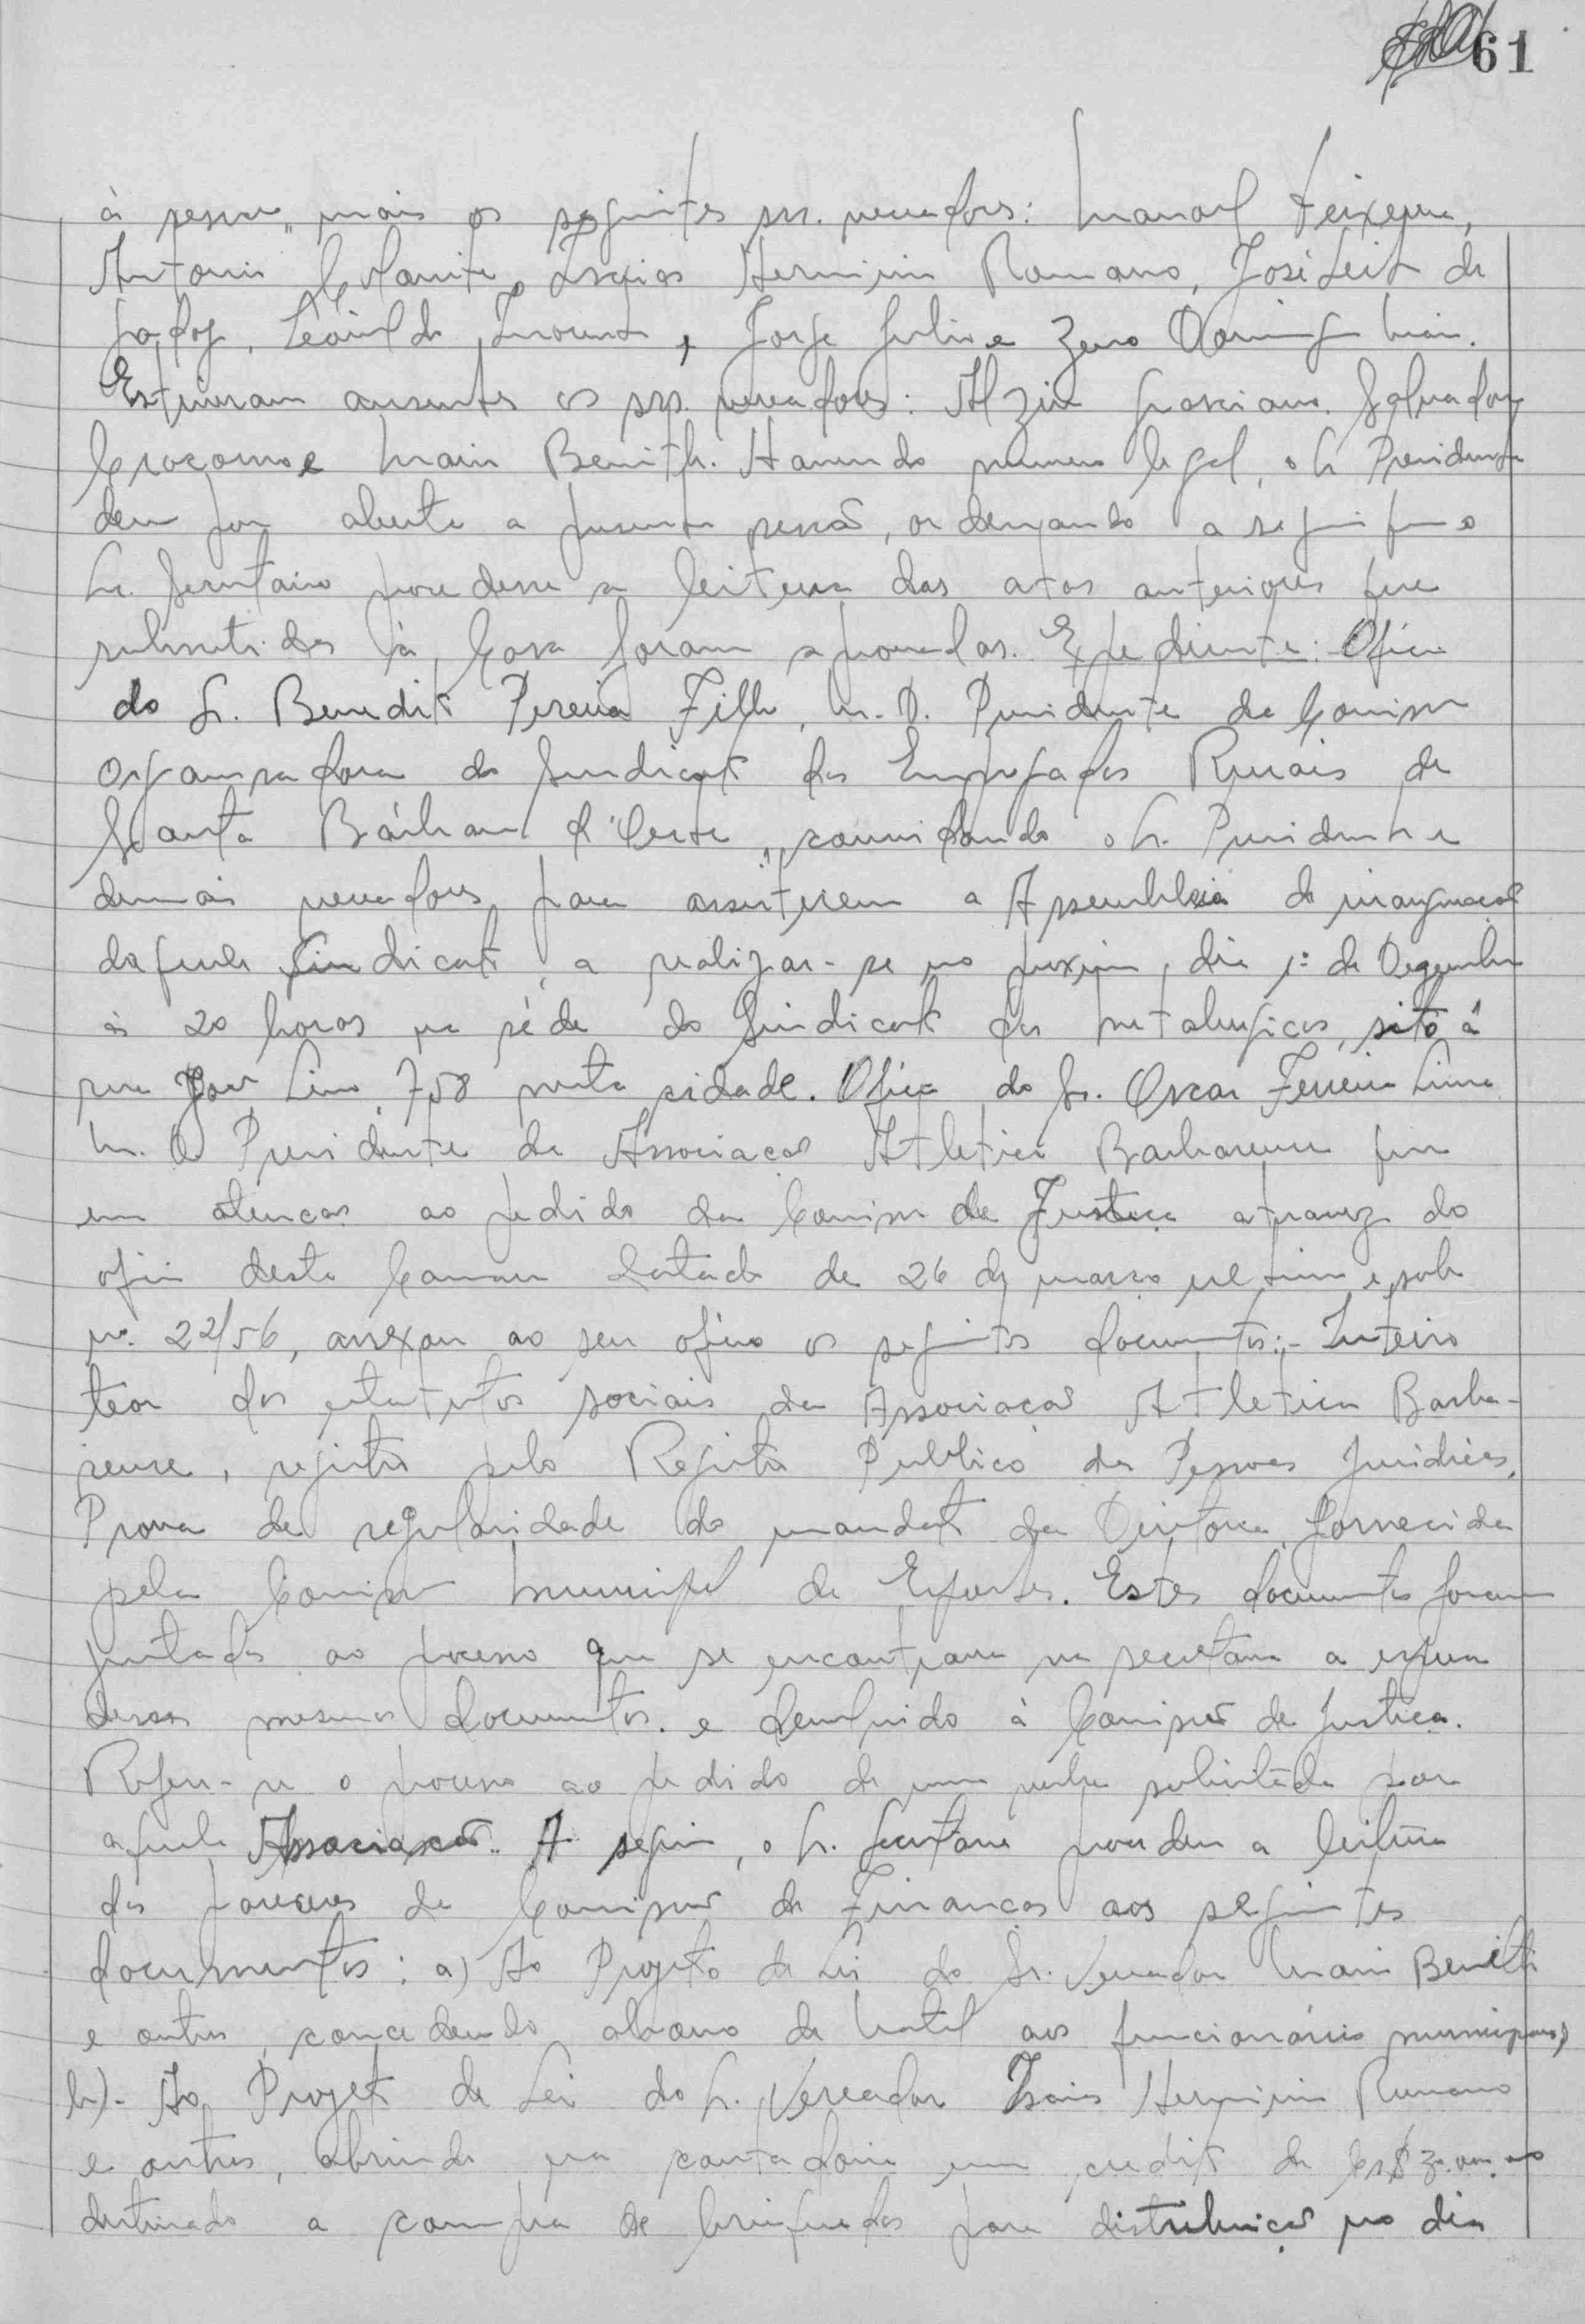 61
à sessão, mais os seguintes srs. vereadores: Manoel Teixeira,
Antonio Isaias Herminio Romano, José Leite de
Godoy, Leonildo , Jorge Julio e Zeno Domingos Maia.
Estiveram ausentes os srs. vereadores: Alzir Graciano. Salvador
e Mario Benith. Havendo numero legal, o Sr Presidente
deu por aberta a presente sessão, ordenando a seguir que o
Sr. Secretario procedesse a leitura das atas anteriores que
submetidas à Casa foram aprovadas. Expediente: Oficio
do Sr. Benedito Pereira Filho, M. D. Presidente da Comissão
Organisadora do Sindicato dos Empregados Rurais de
Santa Bárbara d'Oeste, convidando o Sr. Presidente e
demais vereadores para assistirem a Assembleia de inauguração
daquele Sindicato, a realizar-se no proximo dia 1º de Dezembro
ás 20 horas na séde do Sindicato dos metalurgicos, sito á
rua Lino 758 nesta cidade. Oficio do Sr. Oscar Ferreira Lima
M. D Presidente da Associação Atletica Barbarense que
em atenção ao pedido da Comissão de Justiça atravez do
oficio desta Camara datado de 26 de março ultimo e sob
nº 22/56, anexou ao seu oficio os seguintes documentos:- Inteiro
teor dos estatutos sociais da Associação Atletica Barba-
rense, registro pelo Registro Publico das Pessoas Juridicas.
Prova de regularidade do mandato da Diretoria fornecida
pela Comissão Municipal de Esportes. Estes documentos foram
juntados ao processo que se encontrava na secretaria a espera
desses mesmos documentos. e devolvido à Comissão de Justiça.
Refere-se o processo ao pedido de uma verba solicitada por
aquela Associação. A seguir, o Sr. Secretario procedeu a leitura
dos pareceres da Comissão de Finanças aos seguintes
documentos: a) Ao Projeto de Lei do Sr. Vereador Mario Benith
e outros, concedendo abono de Natal aos funcionários municipais;
b)- Ao Projeto de Lei do Sr. Vereador Isaias Herminio Romano
e outros, abrindo na contadoria um credito de Cr$
destinado a compra de brinquedos para distribuição no dia